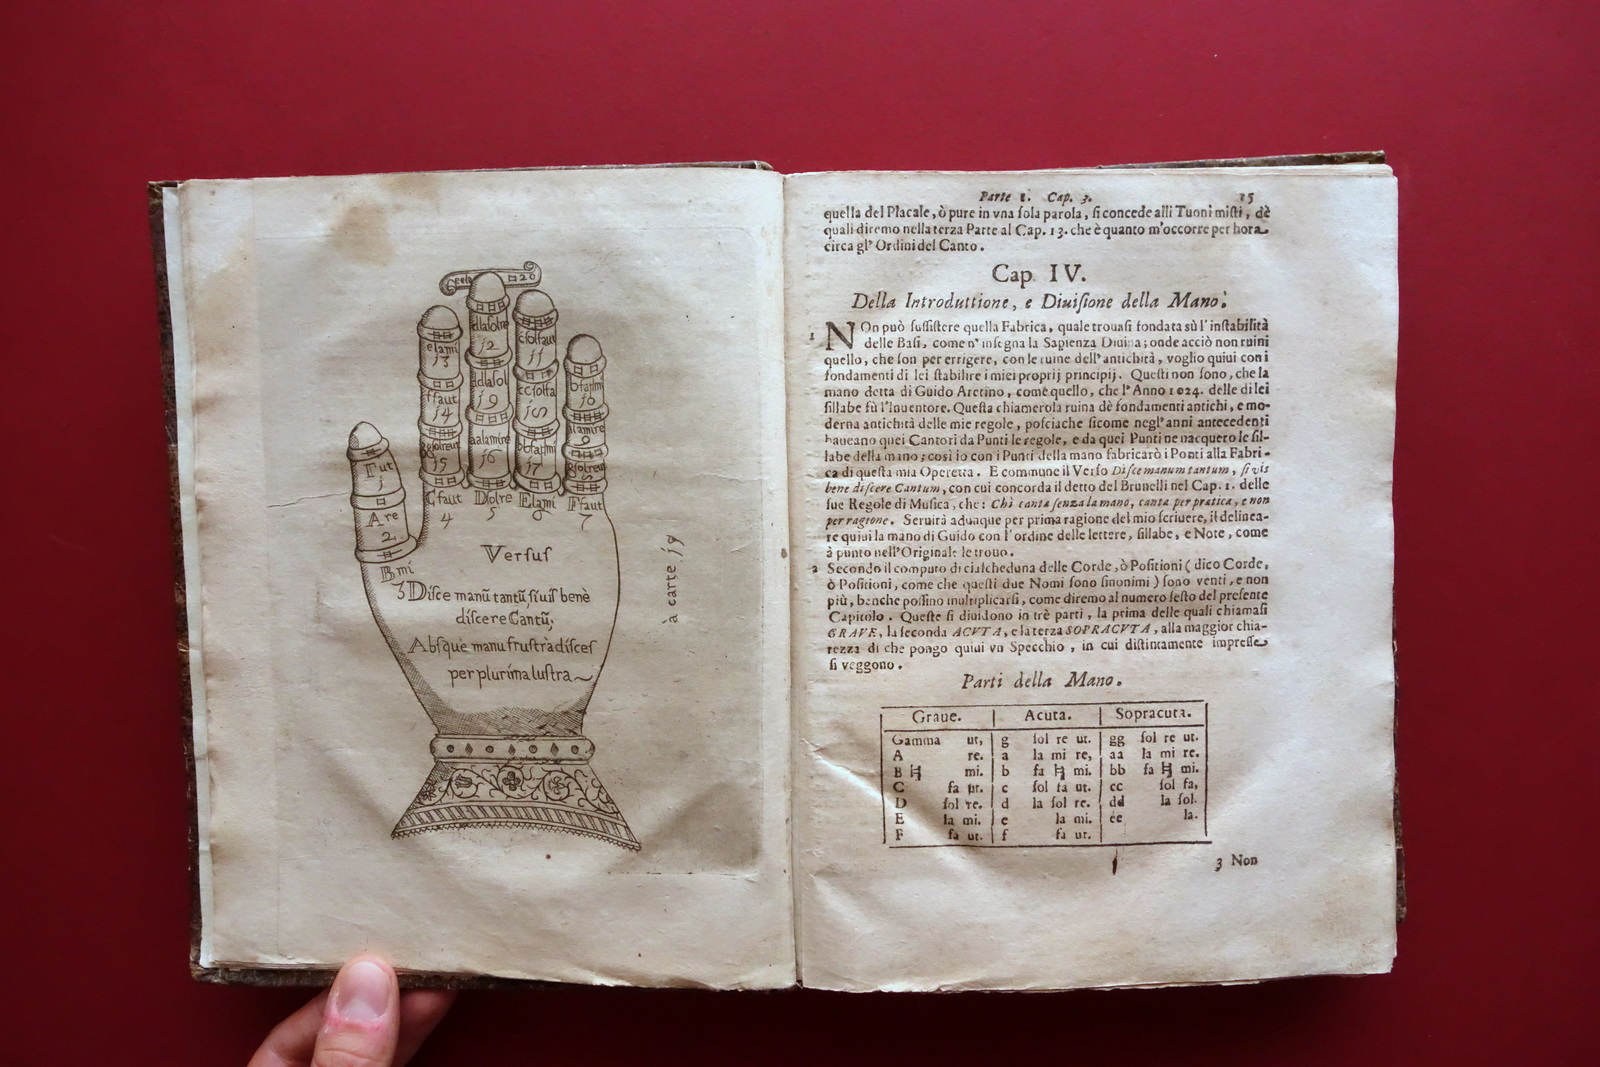 Γ ut
j
A re
2
B mi
3
elami
j3
ffaut
j4
ggsolreut
j5
Cfaut
4
eela 20
dlasolre
j2
ddlasol
j9
aalamire
j6
Dsolre
5
csolfaut
jj
ccsolfa
j8
bbfami
j7
Elami
6
bfami
j0
alamire
9
gsolreut
8
Ffaut
7
Versus
Disce manũ tantũ, si uis benè
discere Cantũ,
Absque manu frustrà disces
per plurima lustra~
à carte j9
Parte 1. Cap. 3. 15
quella del Placale, ò pure in vna sola parola, si concede alli Tuoni misti, dè
quali diremo nella terza Parte al Cap. 13. che è quanto m'occorre per hora
circa gl' Ordini del Canto.
Cap IV.
Della Introduttione, e Diuisione della Mano.
1 NOn può sussistere quella Fabrica, quale trouasi fondata sù l'instabilità
delle Basi, come n'insegna la Sapienza Diuina; onde acciò non ruini
quello, che son per errigere, con le ruine dell'antichità, voglio quiui con i
fondamenti di lei stabilire i miei proprij principij. Questi non sono, che la
mano detta di Guido Aretino, come quello, che l'Anno 1024. delle di lei
sillabe fù l'Inuentore. Questa chiamerola ruina dè fondamenti antichi, e mo-
derna antichità delle mie regole, posciache sicome negl'anni antecedenti
haueano quei Cantori da Punti le regole, e da quei Punti ne nacquero le sil-
labe della mano; così io con i Punti della mano fabricarò i Ponti alla Fabri-
ca di questa mia Operetta. E commune il Verso Disce manum tantum, si vis
bene discere Cantum, con cui concorda il detto del Brunelli nel Cap. 1. delle
sue Regole di Musica, che: Chi canta senza la mano, canta per pratica, e non
per ragione. Seruirà adunque per prima ragione del mio scriuere, il delinea-
re quiui la mano di Guido con l'ordine delle lettere, sillabe, e Note, come
à punto nell'Originale le trouo.
2 Secondo il computo di cialcheduna delle Corde, ò Positioni (dico Corde,
ò Positioni, come che questi due Nomi sono sinonimi) sono venti, e non
più, benche possino multiplicarsi, come diremo al numero sesto del presente
Capitolo. Queste si diuidono in trè parti, la prima delle quali chiamasi
GRAVE, la seconda ACVTA, e la terza SOPRACVTA, alla maggior chia-
rezza di che pongo quiui vn Specchio, in cui distintamente impresse
si veggono.
Parti della Mano.
Graue. | Acuta. | Sopracuta.
Gamma ut, | g sol re ut. | gg sol re ut.
A re. | a la mi re, | aa la mi re.
B ♮ mi. | b fa ♮ mi. | bb fa ♮ mi.
C fa ut. | c sol fa ut. | cc sol fa,
D sol re. | d la sol re. | dd la sol.
E la mi. | e la mi. | ee la.
F fa ut. | f fa ut.
3 Non